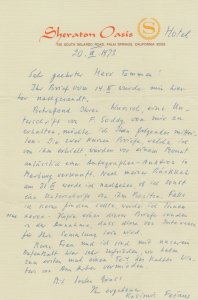 Sheraton Oasis Hotel
THE SOUTH BELARDO ROAD, PALM SPRINGS, CALIFORNIA
20. III 1973
Sehr geehrter Herr Emma!
Ihr Brief vom 14. III wurde mir hier
nachgesandt.
Betreffend Ihren Wunsch, eine Un-
terschrift von F. Soddy von mir zu
erhalten, möchte ich Ihnen folgendes mittei-
len. Die zwei kurzen Briefe welche ich
von ihm erhielt wurden vor einem Monat
anlässlich einer Autographen-Auktion in
Marburg verkauft. Nach meiner Rückkehr
am 21 IV werde ich nachsehen ob ich sonst
eine Unterschrift von ihm besitze. Falls
ich keine finden sollte, werde ich Ihnen
einen dieser Briefe senden
in der Annahme, dass diese von Interesse
für Ihre Sammlung sein wird.
Meine Frau und ich sind mit unserem
Aufenthalt hier sehr zufrieden, da haben
zum ersten mal einen Teil des kalten Win-
ters an der Ruhr vermieden.
Mit besten Grüssen
Ihr ergebener
Kasimir Fajans